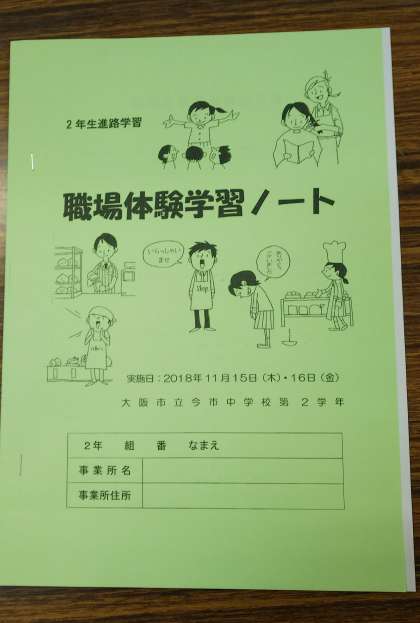 2年生進路学習
職場体験学習ノート
いらっしゃい
ませ
ありがとう
ございました
Shop
実施日:2018年11月15日(木)・16日(金)
大阪市立今市中学校第2学年
2年 組 番 なまえ
事業所名
事業所住所